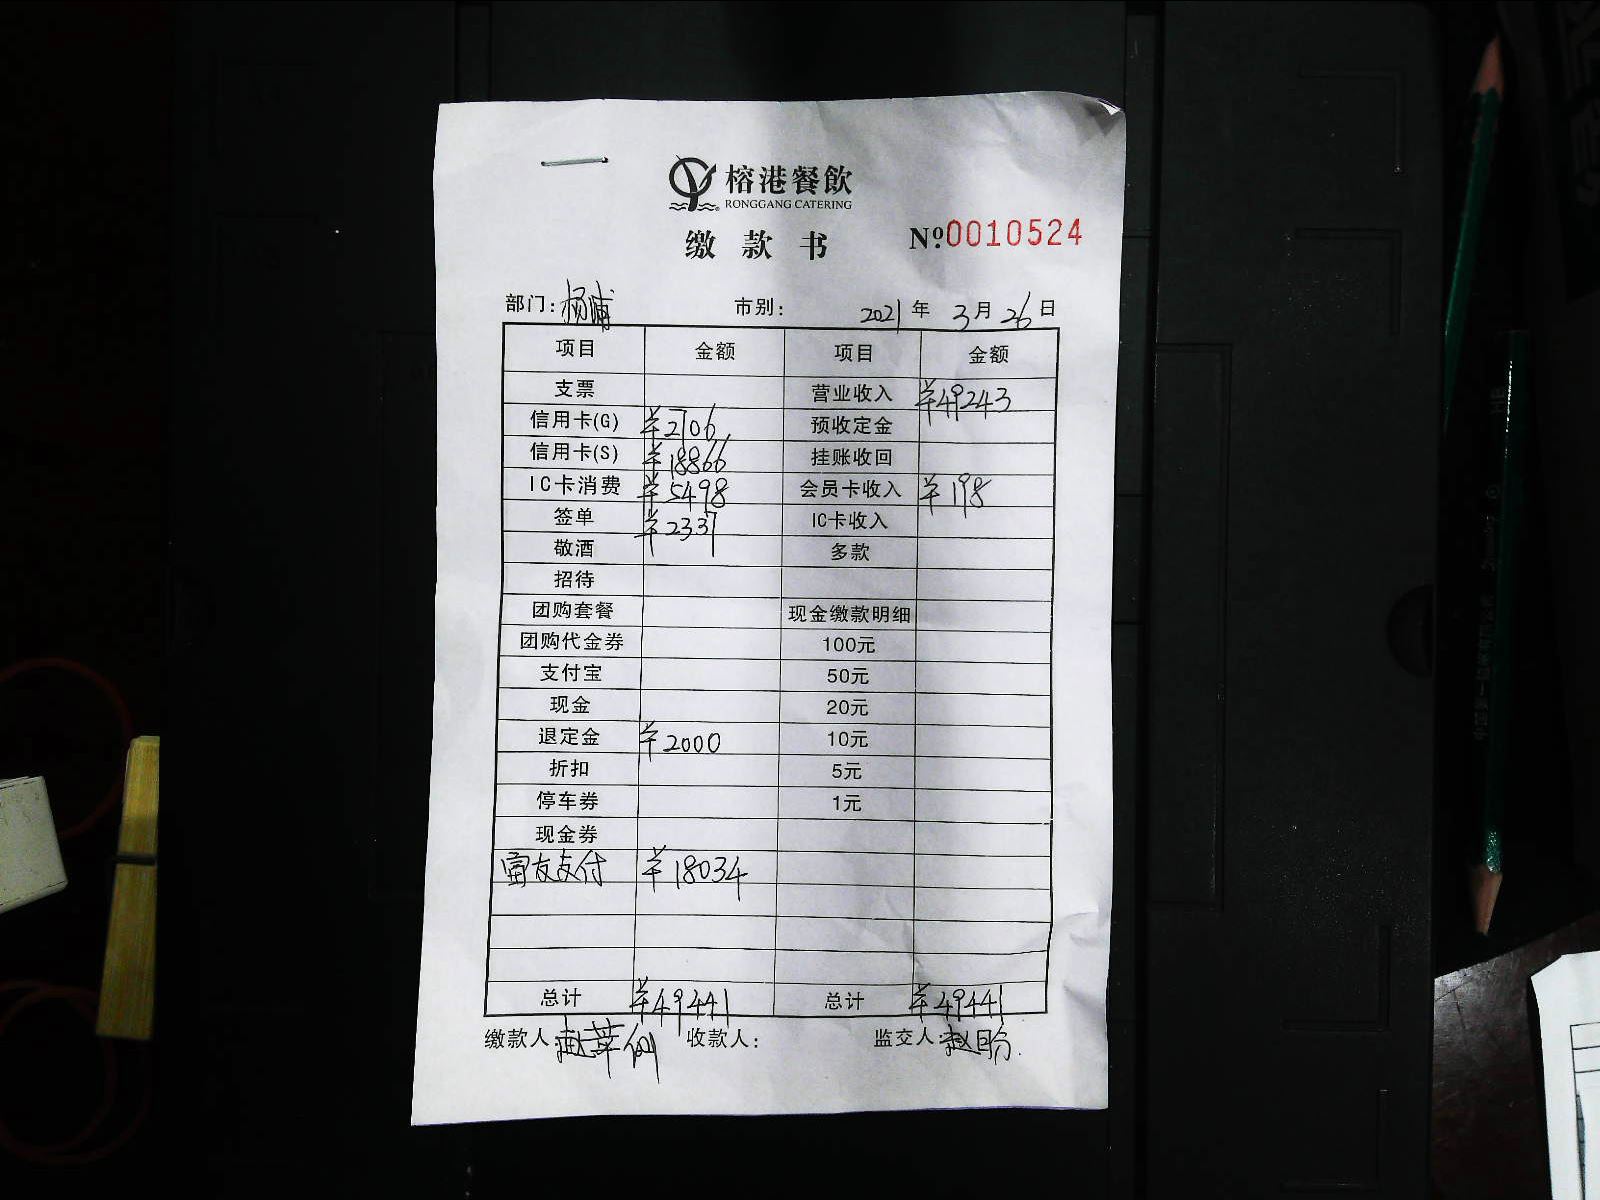 榕港餐飲
RONGGANG CATERING
缴款书 Nº:0010524
部门: 杨浦 市别: 2021年 3月 26日
项目 金额 项目 金额
支票 营业收入 ¥49243
信用卡(G) ¥2706 预收定金
信用卡(S) ¥18866 挂账收回
IC卡消费 ¥5498 会员卡收入 ¥198
签单 ¥2337 IC卡收入
敬酒 多款
招待
团购套餐 现金缴款明细
团购代金券 100元
支付宝 50元
现金 20元
退定金 ¥2000 10元
折扣 5元
停车券 1元
现金券
富友支付 ¥18034
总计 ¥49441 总计 ¥49441
缴款人: 收款人: 监交人: